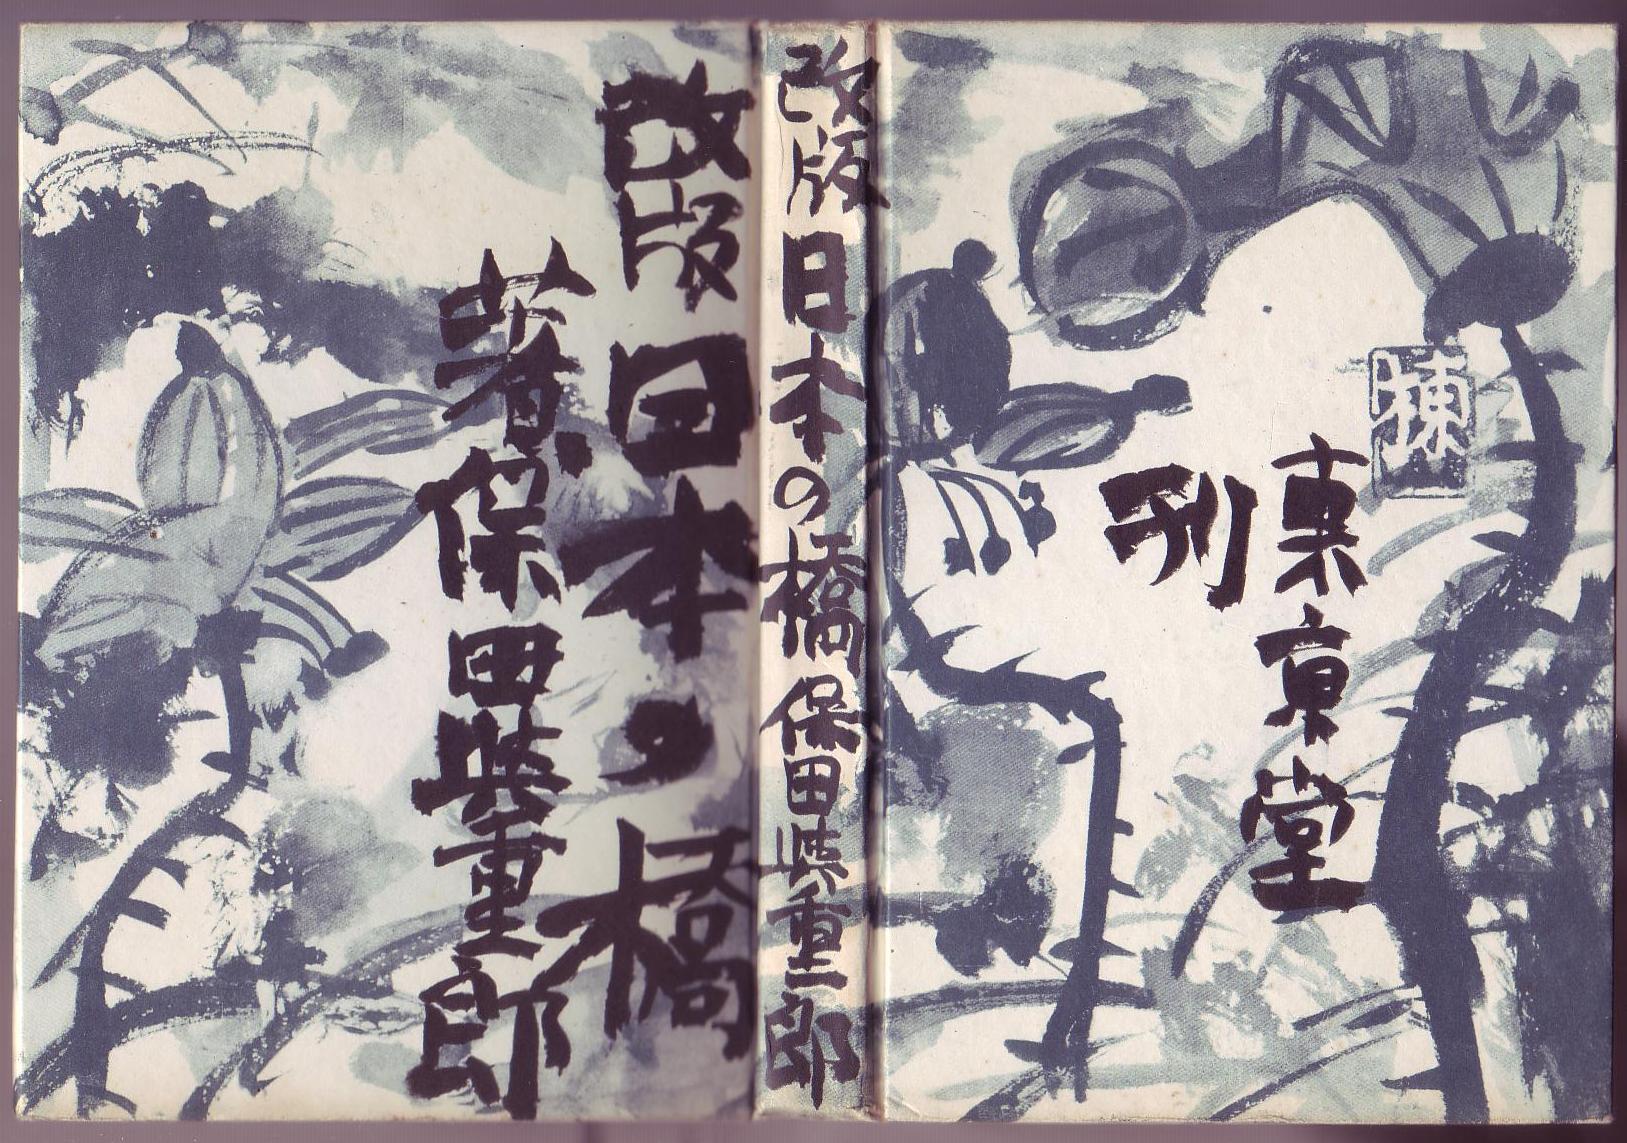 改版 日本の橋
著 保田與重郎
改版 日本の橋 保田與重郎
東京堂
刊
棟